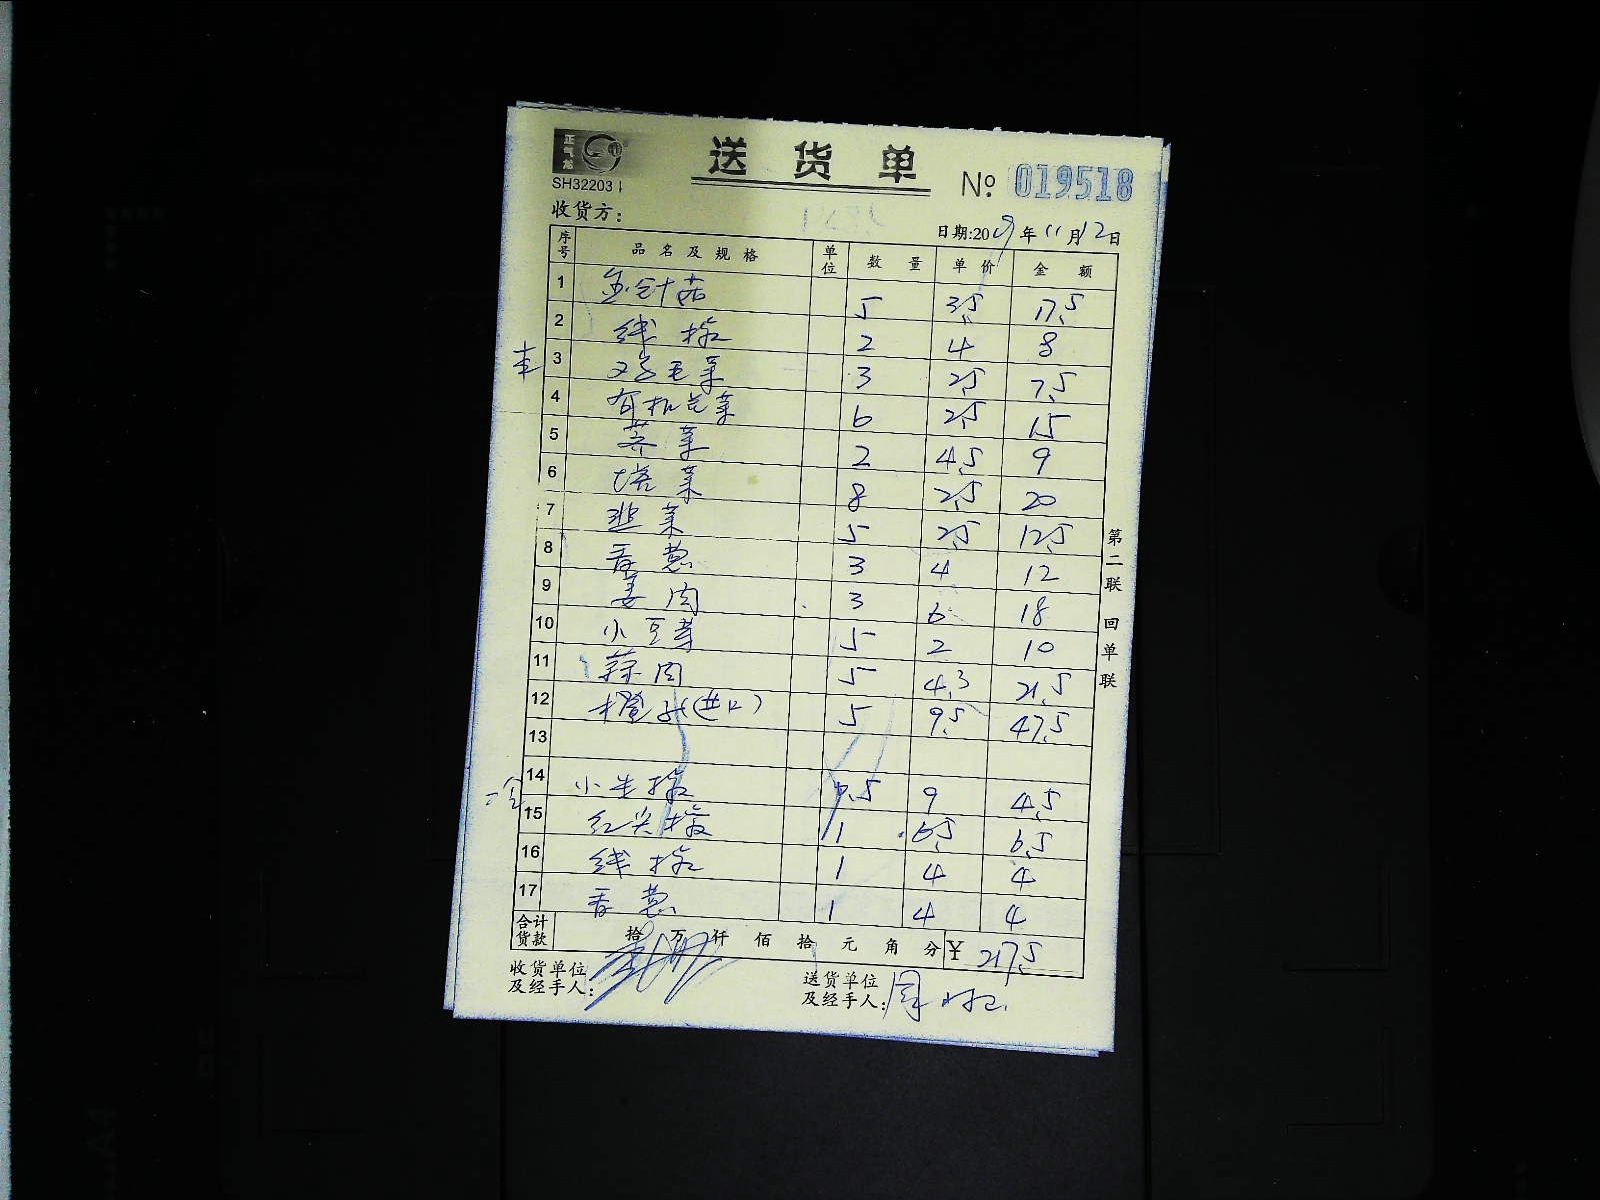 正气龙
SH32203
送货单
№ 019518
收货方:
日期:2019年11月12日
序号 品名及规格 单位 数量 单价 金额
1 金针菇 5 3.5 17.5
2 线椒 2 4 8
3 鸡毛菜 3 2.5 7.5
4 有机花菜 6 2.5 15
5 荠菜 2 4.5 9
6 塔菜 8 2.5 20
7 韭菜 5 2.5 12.5
8 香葱 3 4 12
9 姜肉 3 6 18
10 小豆芽 5 2 10
11 蒜肉 5 4.3 21.5
12 橙子(进口) 5 9.5 47.5
13
14 小尖椒 0.5 9 4.5
15 红尖椒 1 6.5 6.5
16 线椒 1 4 4
17 香葱 1 4 4
合计货款 拾万仟佰拾元角分 ¥ 217.5
收货单位及经手人:
送货单位及经手人: 周
第二联 回单联